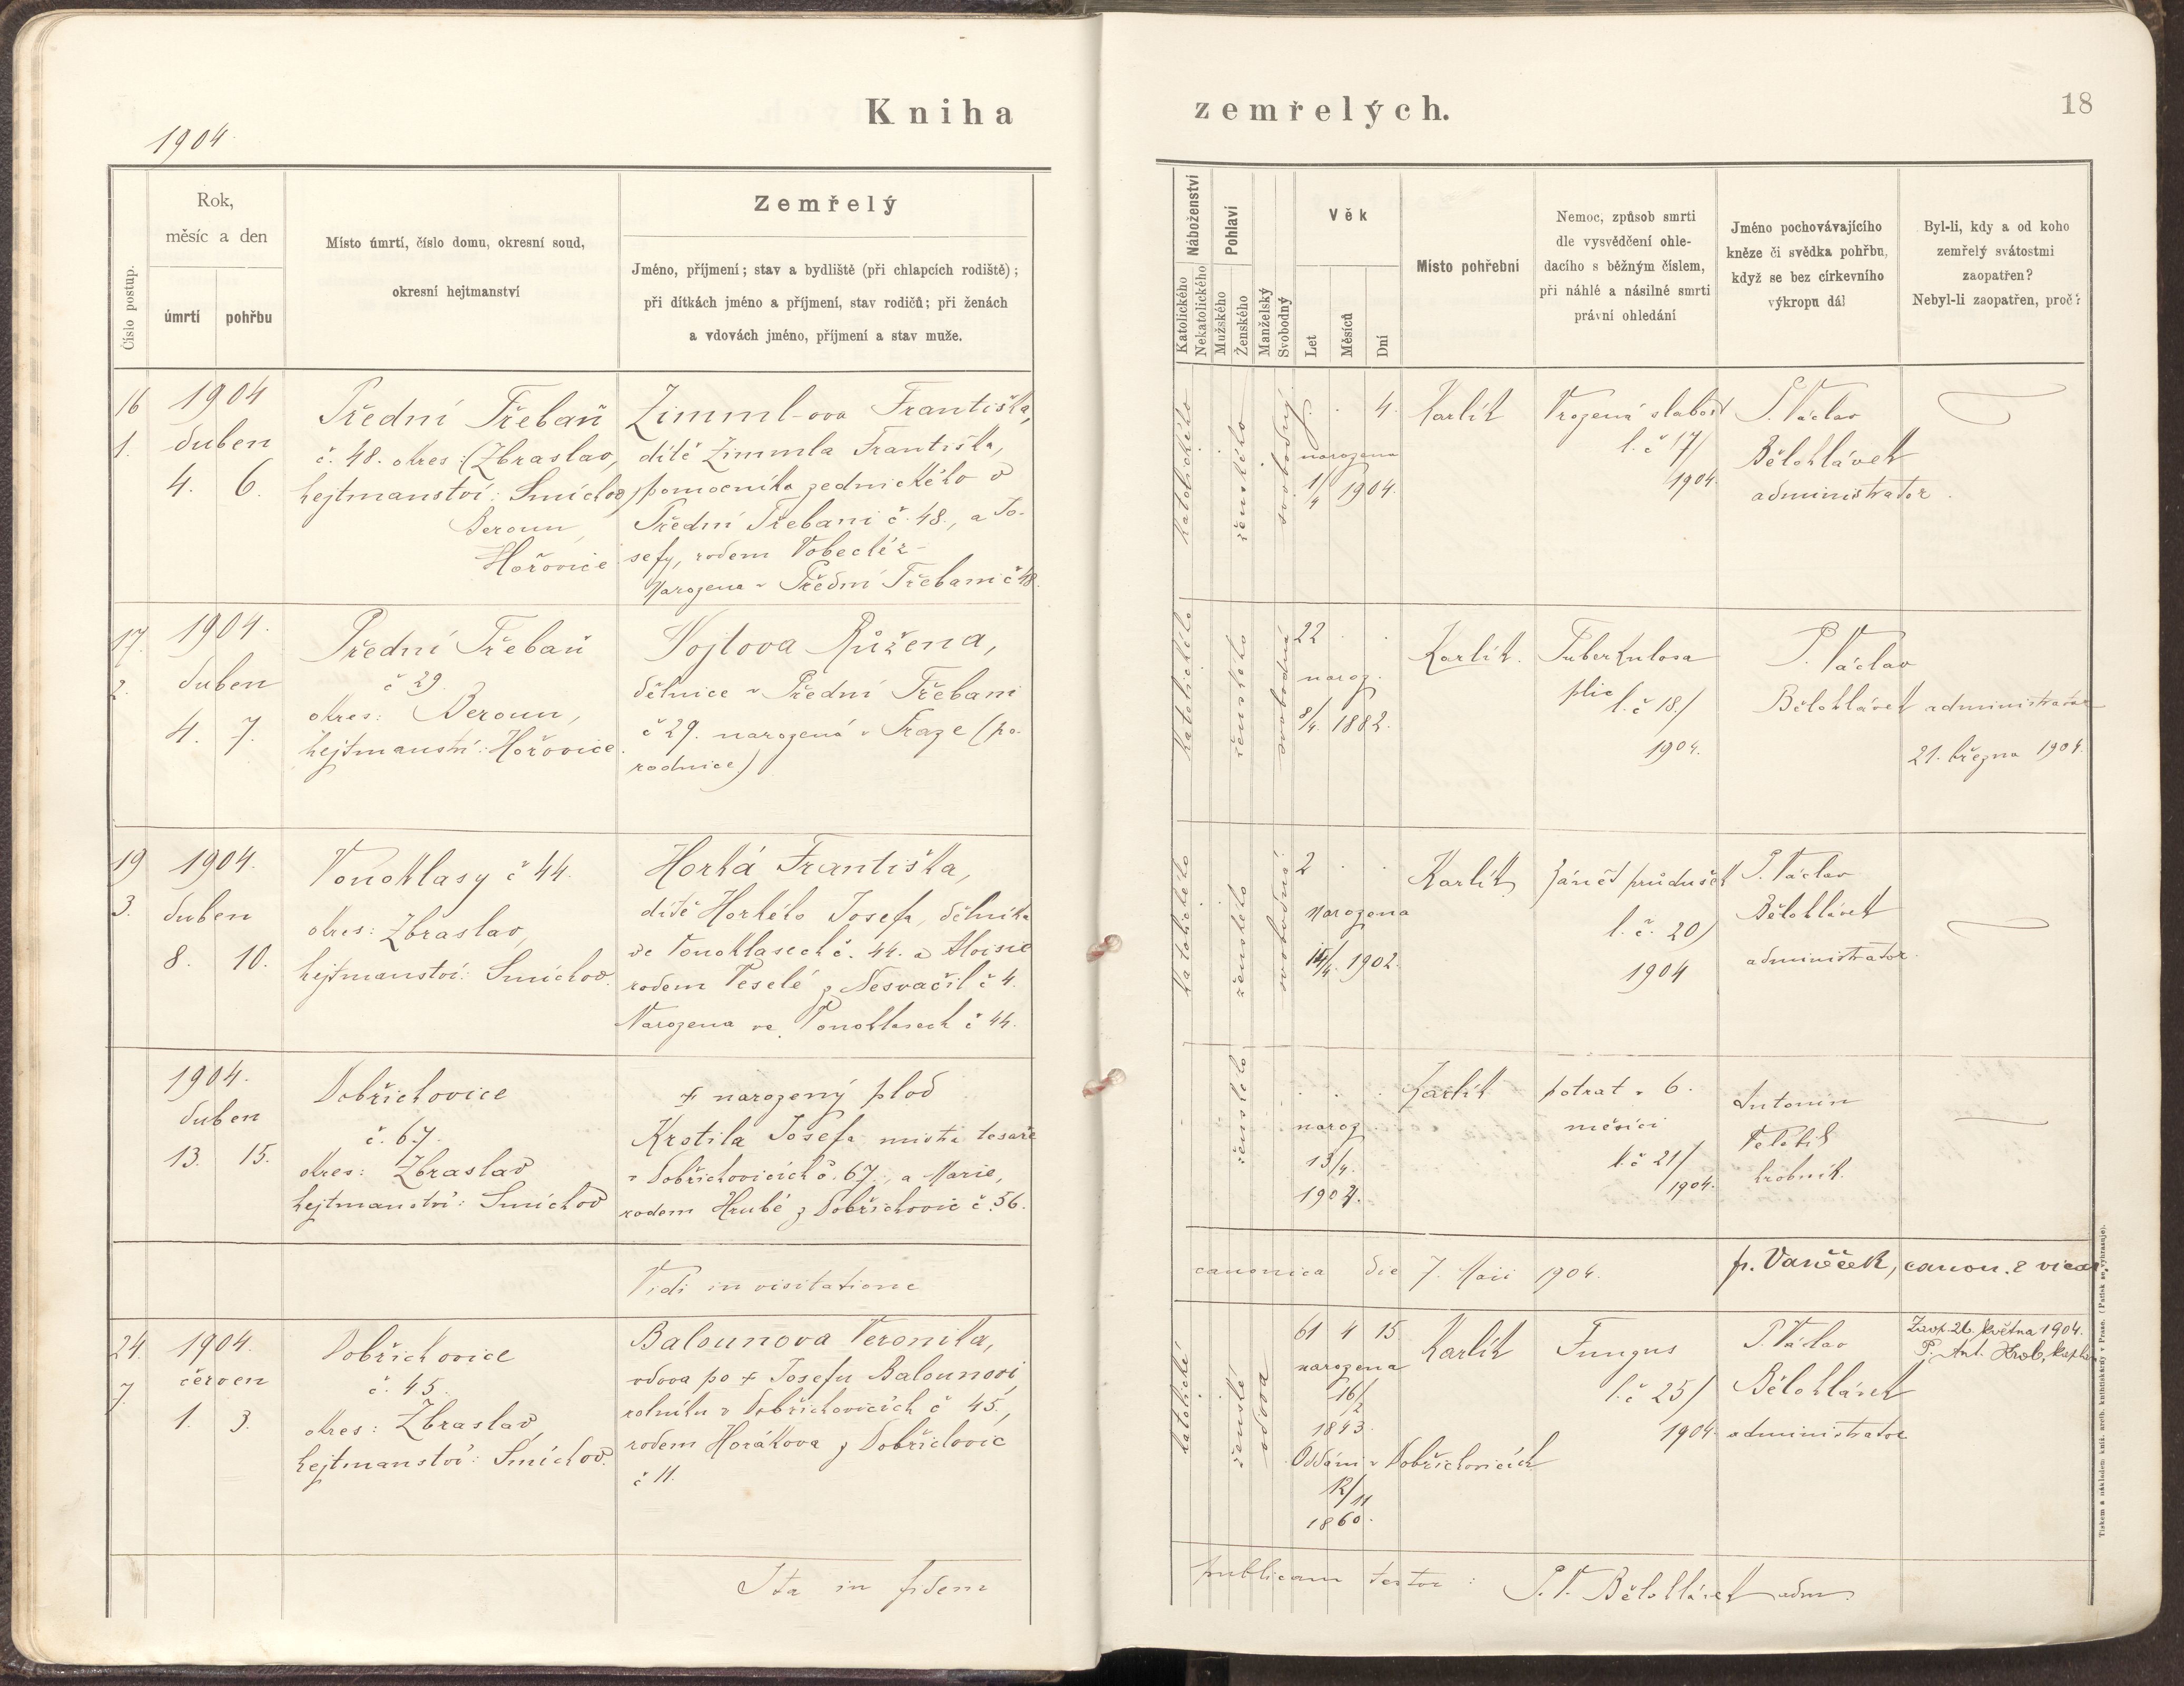 Kniha
zemřelých.
18
1904.
Číslo postup.
Rok,
měsíc a den
úmrtí
pohřbu
Místo úmrtí, číslo domu, okresní soud,
okresní hejtmanství
Zemřelý
Jméno, příjmení; stav a bydliště (při chlapcích rodiště);
při dítkách jméno a příjmení, stav rodičů; při ženách
a vdovách jméno, příjmení a stav muže.
Náboženství
Katolického
Nekatolického
Pohlaví
Mužského
Ženského
Manželský
Svobodný
Věk
Let
Měsíců
Dní
Místo pohřební
Nemoc, způsob smrti
dle vysvědčení ohle-
dacího s běžným číslem,
při náhlé a násilné smrti
právní ohledání
Jméno pochovávajícího
kněze či svědka pohřbu,
když se bez církevního
výkropu dál
Byl-li, kdy a od koho
zemřelý svátostmi
zaopatřen?
Nebyl-li zaopatřen, proč?
16
1.
1904
duben
4. 6.
Přední Třebaň
č. 48. okres: (Zbraslav,
hejtmanství: Smíchov)
Beroun,
Hořovice
Zimml-ova Františka,
dítě Zimmla Františka,
pomocníka zednického v
Přední Třebani č. 48., a Jo-
sefy, rodem
Narozena v Přední Třebani č 48.
katolického
ženského
svobodný
4.
narozena
1/4 1904.
Karlík
Vrozená slabost
l. č 17/
1904.
P. Václav
Bělohlávek
administrator.
17.
2.
1904.
duben
4. 7.
Přední Třebaň
č 29.
okres: Beroun,
hejtmanství: Hořovice.
Vojtova Růžena,
dělnice v Přední Třebani
č 29. narozená v Praze (po-
rodnice)
katolického
ženského
svobodná
22
naroz.
8/4. 1882.
Karlík.
Tuberkulosa
plic
l. č 18./
1904.
P. Václav
Bělohlávek administrator
21. března 1904.
19
3.
1904.
duben
8. 10.
Vonoklasy č 44.
okres: Zbraslav,
hejtmanství: Smíchov.
Horká Františka,
dítě Horkého Josefa, dělníka
ve Vonoklasech č. 44. a Aloisie
rodem Veselé z Nesvačil č 4.
Narozena ve Vonoklasech č 44.
katolického
ženského
svobodná
2
Narozena
1902.
Karlík
Zánět průdušek
l. č. 20/
1904
P. Václav
Bělohlávek
administrator.
1904.
duben
13. 15.
Dobřichovice
č. 67.
okres: Zbraslav
hejtmanství: Smíchov
+ narozený plod
Krotila Josefa, mistra tesaře
v Dobřichovicích č. 67., a Marie,
rodem Hrubé z Dobřichovic č. 56.
ženského
naroz.
13/4.
1904.
Karlík
potrat v 6.
měsíci
l. č 21/
1904.
Antonín
hrobník.
Vidi in visitatione
canonica die 7. Maii 1904.
p. Vaněček, canon. & vicar.
24.
7.
1904.
červen
1. 3.
Dobřichovice
č. 45.
okres: Zbraslav,
hejtmanství: Smíchov.
Balounova Veronika,
vdova po + Josefu Balounovi,
rolníku v Dobřichovicích č 45.,
rodem Horákova z Dobřichovic
č 11.
katolické
ženské
vdova
61 4 15
narozena
16/2
1843.
Oddáni v Dobřichovicích
12/11
1860.
Karlík
Fungus
l. č 25/
1904.
P. Václav
Bělohlávek
administrator
Zaop. 26. května 1904.
P. Ant. Hrob, kaplan
Ita in fidem
publicam testor: P. V. Bělohlávek adm.
Tiskem a nákladem kníž. arcib. knihtiskárny v Praze. (Patisk se vyhrazuje).